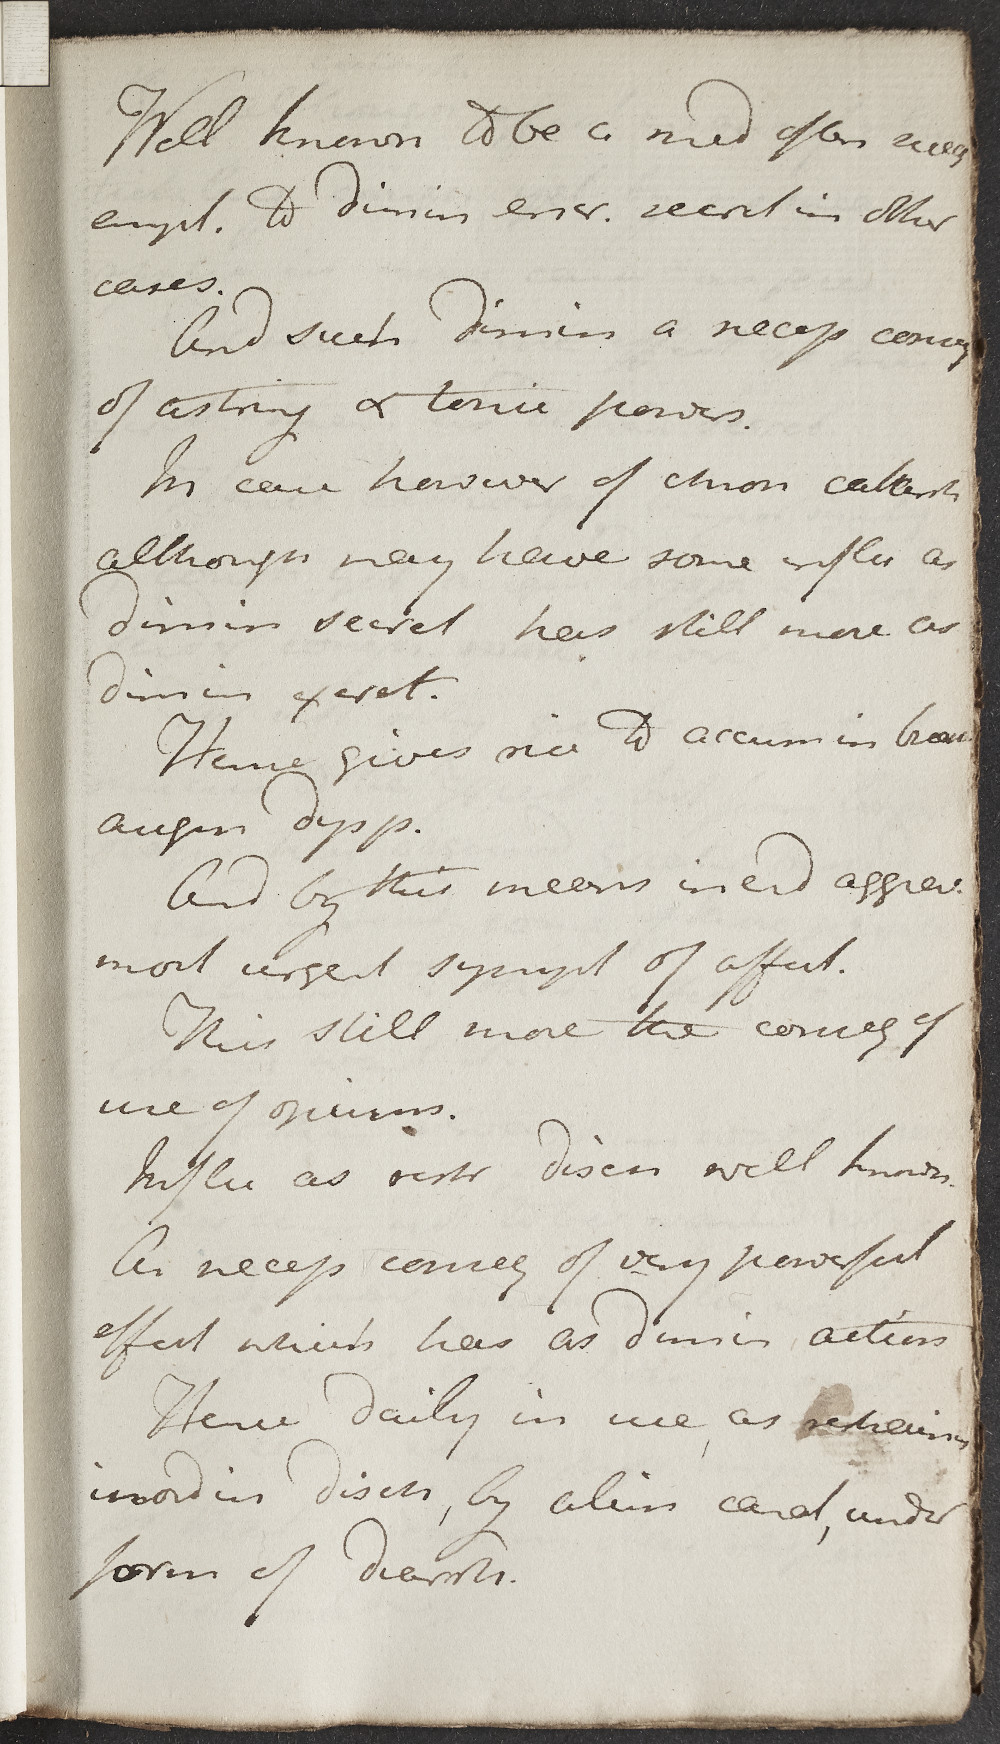 Well known to be a med often succ
empl. to dimin encr. secret in other
cases.
And such dimin a necess conseq
of astring & tonic powers.
In case however of chron catarrh
although may have some influ as
dimin secret has still more as
dimin excret.
Hence gives rise to accum in bron
augm dysp.
And by this means in end aggrav.
most urgent sympt of affect.
This still more the conseq of
use of opiums.
Influ as restr disch well known.
As necess conseq of very powerful
effect which has as dimin action
Hence daily in use, as restraining
inordin disch, by alim canal, under
form of diarrh.